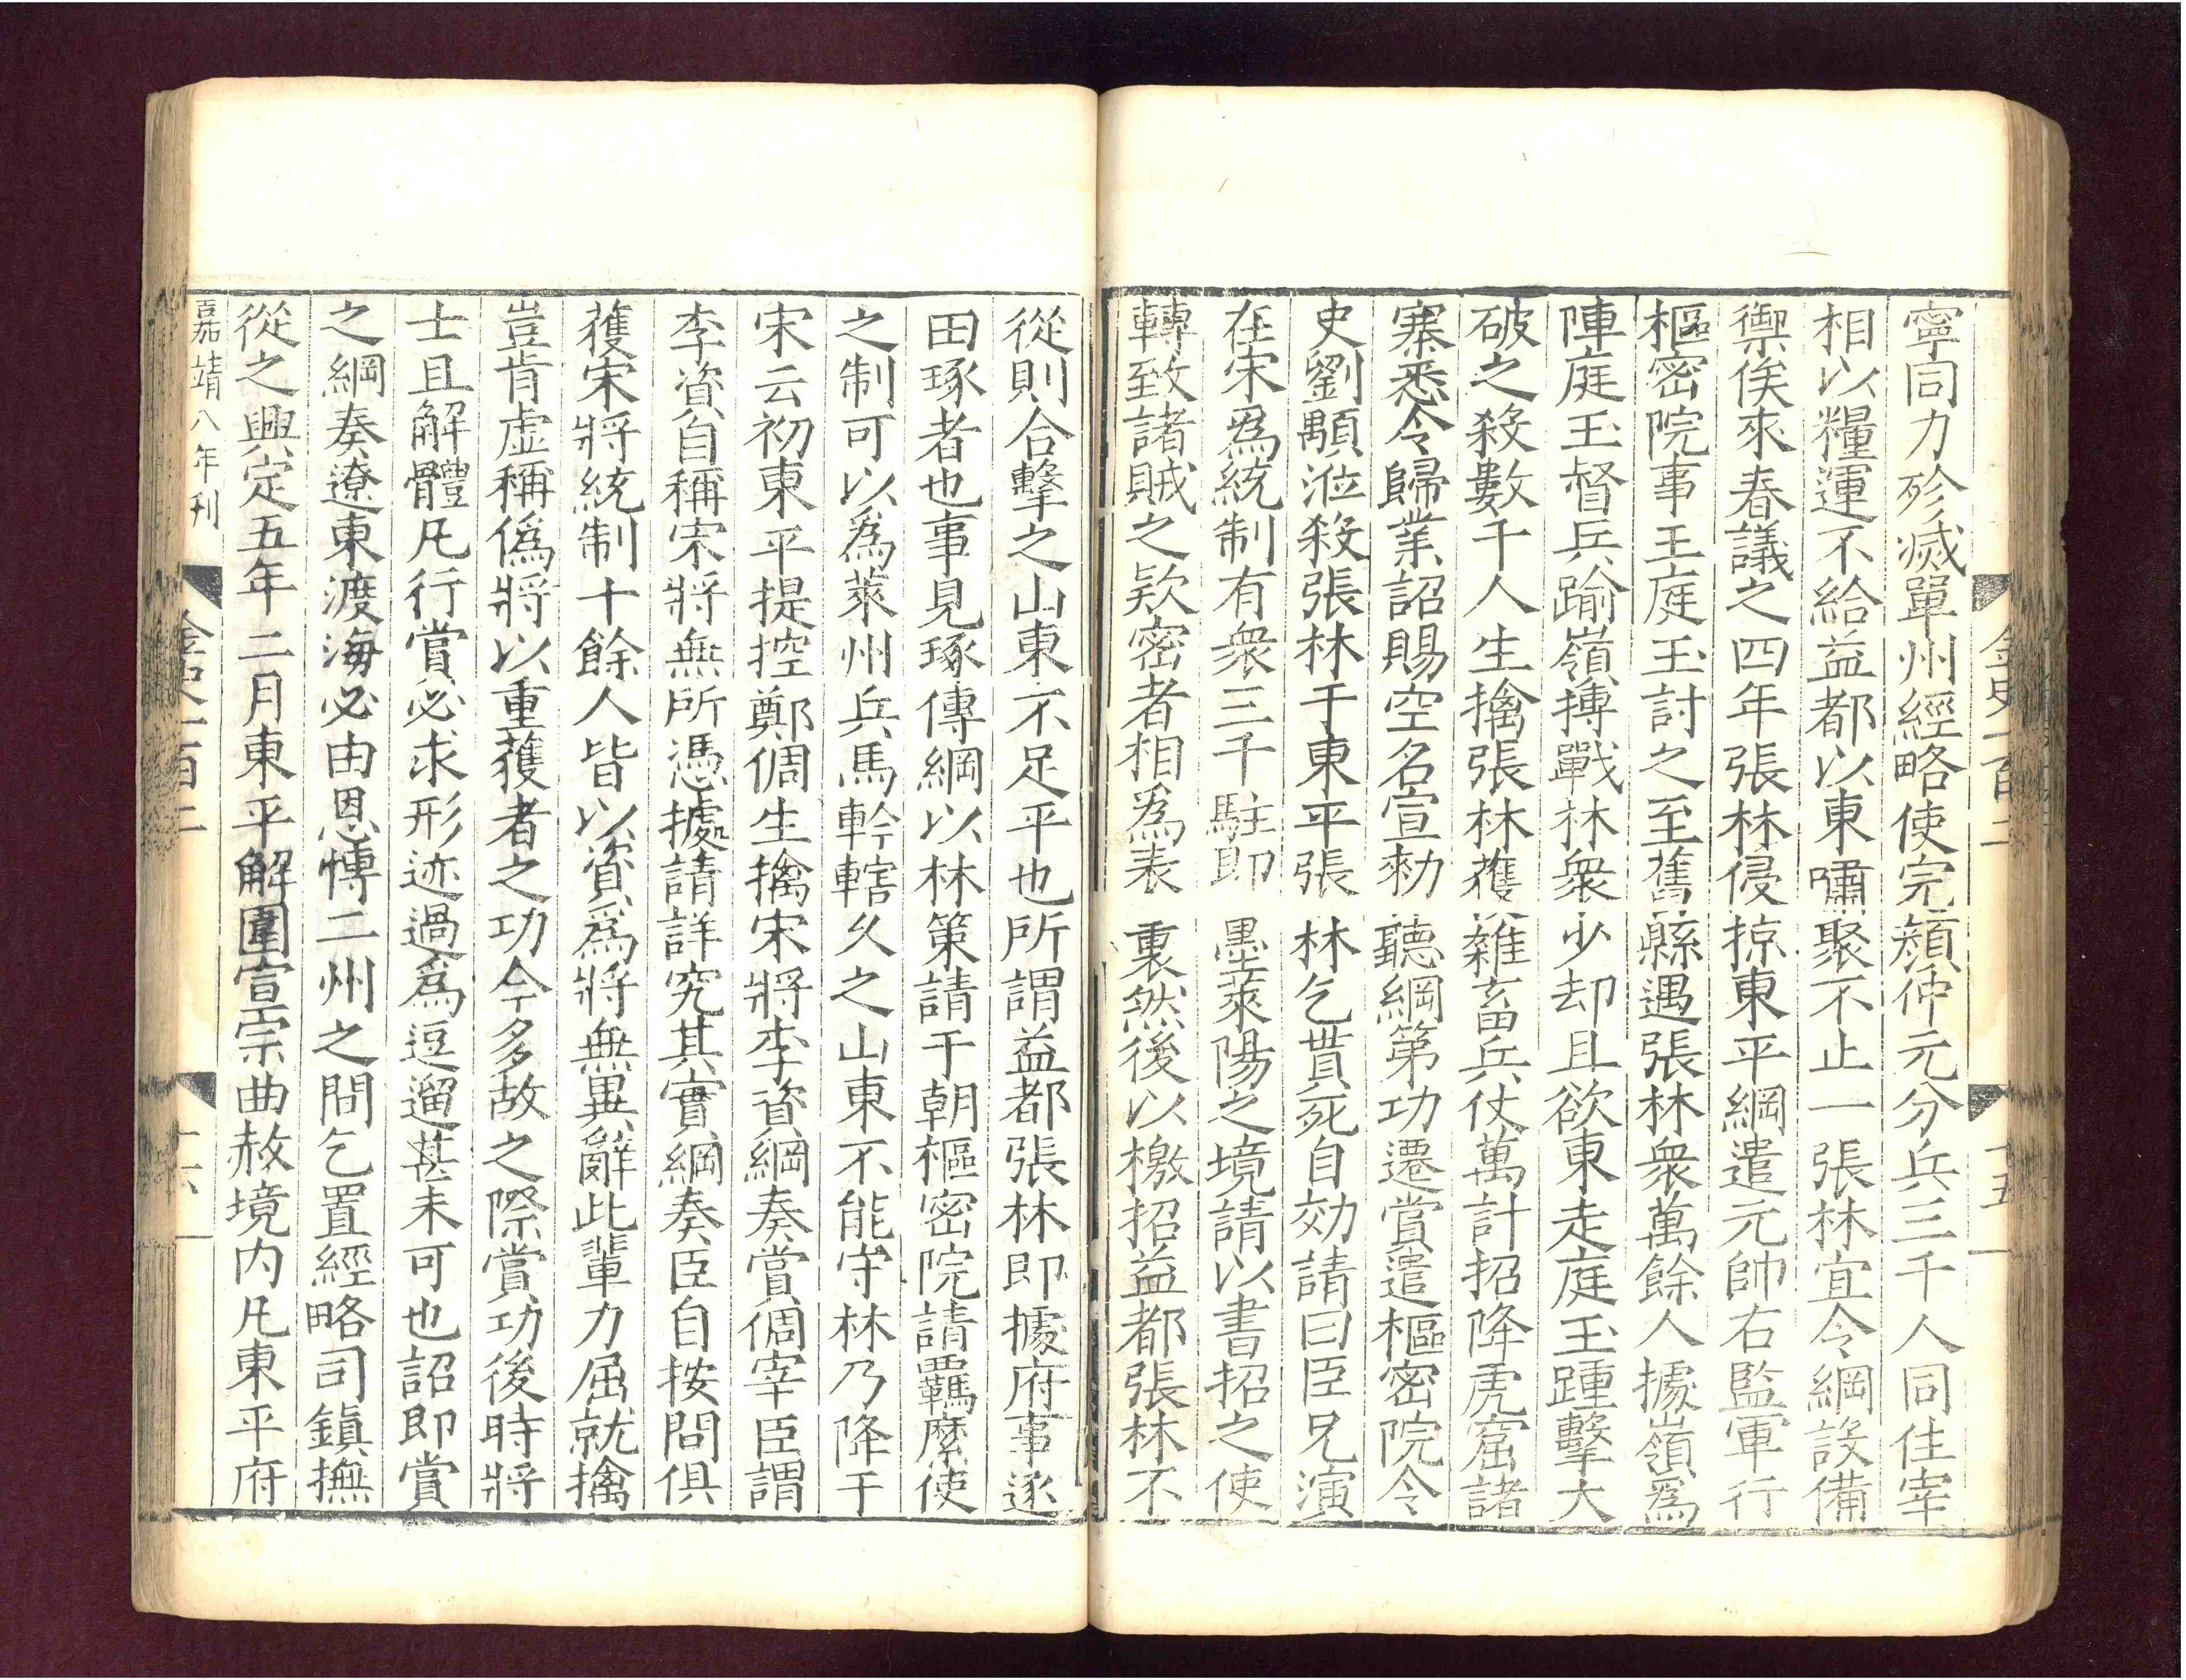 寧同力殄滅單州經略使完顏仲元分兵三千人同往宰
相以糧運不給益都以東嘯聚不止一張林宜令綱設備
禦俟來春議之四年張林侵掠東平綱遣元帥右監軍行
樞密院事王庭玉討之至舊縣遇張林衆萬餘人據嶺爲
陣庭玉督兵踰嶺搏戰林衆少却且欲東走庭玉踵擊大
破之殺數千人生擒張林獲雜畜兵仗萬計招降虎窟諸
寨悉令歸業詔賜空名宣勑聽綱第功遷賞遣樞密院令
史劉顒涖殺張林于東平張林乞貰死自効請曰臣兄演
在宋爲統制有衆三千駐即墨萊陽之境請以書招之使
轉致諸賊之欵密者相爲表裏然後以檄招益都張林不
從則合擊之山東不足平也所謂益都張林即據府事逐
田琢者也事見琢傳綱以林策請于朝樞密院請羈縻使
之制可以爲萊州兵馬幹轄久之山東不能守林乃降于
宋云初東平提控鄭倜生擒宋將李資綱奏賞倜宰臣謂
李資自稱宋將無所憑據請詳究其實綱奏臣自按問俱
獲宋將統制十餘人皆以資爲將無異辭此輩力屈就擒
豈肯虛稱僞將以重獲者之功今多故之際賞功後時將
士且解體凡行賞必求形迹過爲逗遛甚未可也詔即賞
之綱奏遼東渡海必由恩博二州之間乞置經略司鎭撫
從之興定五年二月東平解圍宣宗曲赦境內凡東平府
嘉靖八年刊
金史一百二
十五
金史一百二
十六